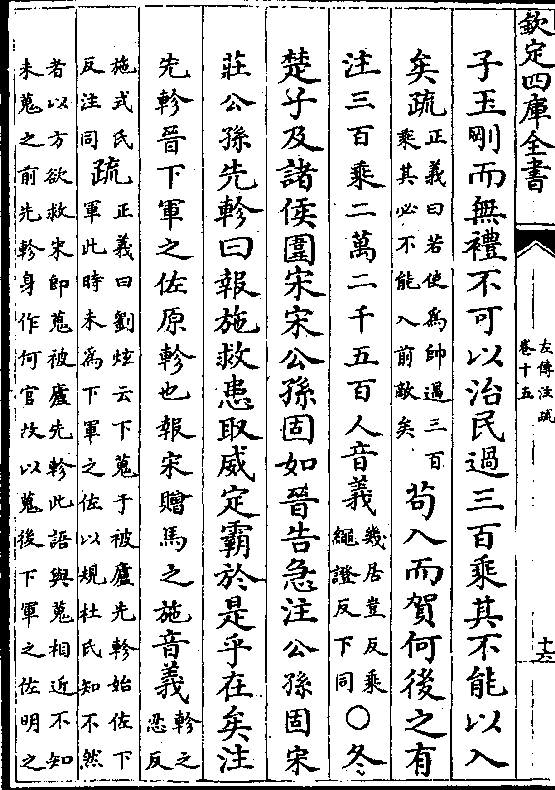 欽定四庫全書
左傳注疏
卷十五
十六
子玉剛而無禮不可以治民過三百乘其不能以入
矣疏
正義曰若使為帥過三百
乘其必不能入前敵矣
苟入而賀何後之有
注三百乘二萬二千五百人音義
幾居豈反乘
繩證反下同
○冬
楚子及諸侯圍宋宋公孫固如晉告急注公孫固宋
莊公孫先軫曰報施救患取威定霸於是乎在矣注
先軫晉下軍之佐原軫也報宋贈馬之施音義
軫之
忍反
施式氏
反注同
疏
正義曰劉炫云下蒐于被廬先軫始佐下
軍此時未為下軍之佐以規杜氏知不然
者以方欲救宋即蒐被廬先軫此語與蒐相近不知
未蒐之前先軫身作何官故以蒐後下軍之佐明之